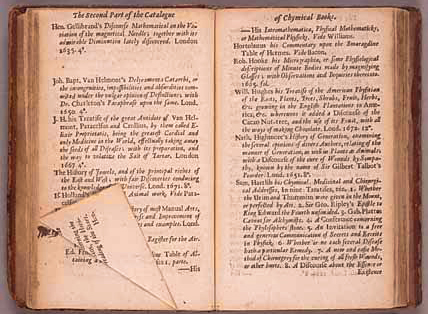 The Second Part of the Catalogue
Hen. Gellibrand's Discourse Mathematical on the Va-
riation of the magnetical Needle; together with its
admirable Diminution lately discovered. London
1635. 4°.
Joh. Bapt. Van Helmont's Deliramenta Catarrhi, or
the incongruities, impossibilities and absurdities com-
mitted under the vulgar opinion of Defluxions, with
Dr. Charleton's Paraphrase upon the same. Lond.
1650. 4°.
J. H. his Treatise of the great Antidote of Van Hel-
mont, Paracelsus and Crollius, by them called E-
lixir Proprietatis, being the greatest Cordial and
only Medicine in the World, effectually taking away
the seeds of all Diseases, with its preparation, and
the way to volatize the Salt of Tartar. London
1667. 4°.
The History of Jewels, and of the principal riches of
the East and West, with fair Discoveries conducing
to the knowledge of Lond. 1671. 8°.
Animal work, Vide Para-
History of most Manual Arts,
and Improvement of
and examples. Lond.
Register for the Air.
line Table of Al-
parts.
taining
—His
of Chymical Books.
—His Iatromathematica, Physical Mathematicks,
or Mathematical Physick, Vide Williams.
Hortulanus his Commentary upon the Smaragdine
Table of Hermes. Vide Bacon.
Rob. Hooke his Micrographia, or some Physiological
descriptions of Minute Bodies made by magnifying
Glasses; with Observations and Inquiries thereunto.
1665. fol.
Will. Hughes his Treatise of the American Physitian
of the Roots, Plants, Trees, Shrubs, Fruit, Herbs,
&c. growing in the English Plantations in Ameri-
ca, &c. whereunto is added a Discourse of the
Cacao Nut-tree, and the use of its Fruit, with all
the ways of making Chocolate. Lond. 1672. 12°.
Nath. Highmore's History of Generation, examining
the several opinions of divers Authors, relating of the
manner of Generation, as well in Plants as Animals,
with a Discourse of the cure of Wounds by Sympa-
thy, known by the name of Sir Gilbert Talbot's
Powder. Lond. 1651. 8°.
Sam. Hartlib his Chymical, Medicinal and Chirurgi-
cal Addresses, in nine Treatises, viz. 1. Whether
the Urim and Thummim were given in the Mount,
or perfected by Art. 2. Sir Geo. Ripley's Epistle to
King Edward the Fourth unfoulded. 3. Gab. Plattes
Caveat for Alchymists. 4. A Conference concerning
the Phylosophers stone. 5. An Invitation to a free
and generous Communication of Secrets and Receits
in Physick. 6. Whether or no each several Disease
hath a particular Remedy. 7. A new and easie Me-
thod of Chirurgery for the curing of all fresh Wounds,
or other hurts. 8. A Discourse about the Essence or
Existence